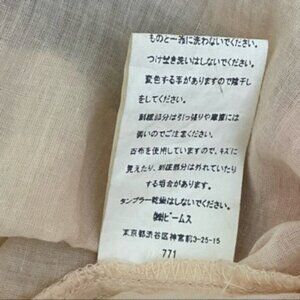 ものと一緒に洗わないでください。
つけ置き洗いはしないでください。
変色する事がありますので陰干し
をしてください。
刺繍部分は引っ張りや摩擦には
弱いのでご注意ください。
古布を使用していますので、キズに
見えたり、刺繍部分は外れていたり
する場合があります。
タンブラー乾燥はしないでください。
㈱ビームス
東京都渋谷区神宮前3-25-15
771